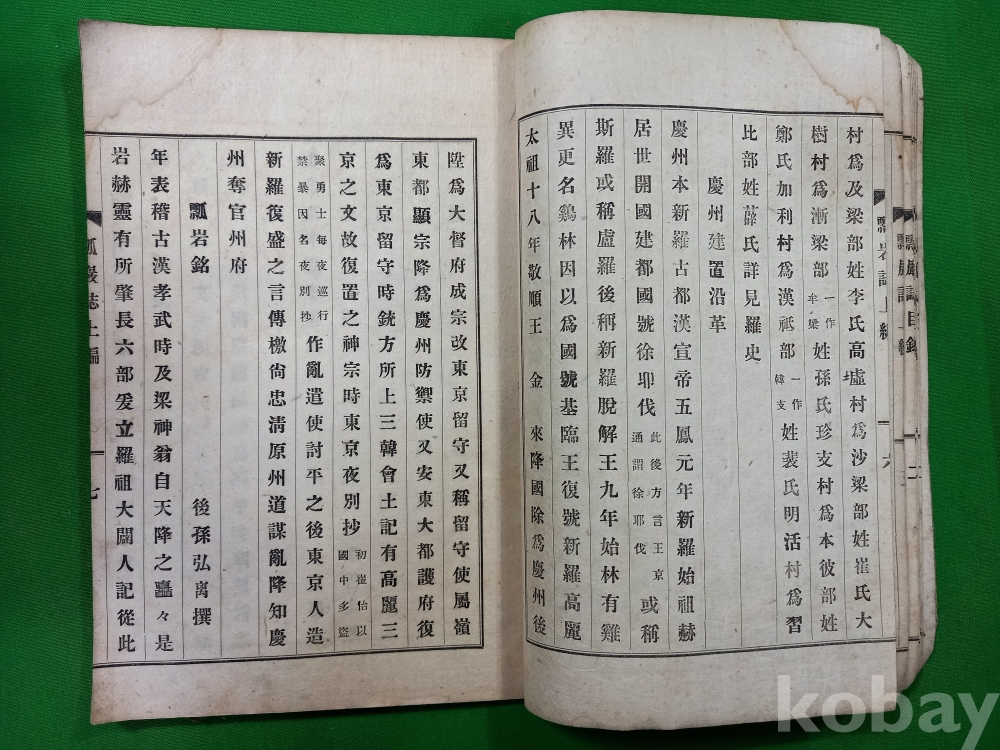 村爲及梁部姓李氏高墟村爲沙梁部姓崔氏大
樹村爲漸梁部一作牟梁姓孫氏珍支村爲本彼部姓
鄭氏加利村爲漢祗部一作韓支姓裴氏明活村爲習
比部姓薛氏詳見羅史
慶州建置沿革
慶州本新羅古都漢宣帝五鳳元年新羅始祖赫
居世開國建都國號徐卽伐此後方言王京通謂徐耶伐或稱
斯羅或稱盧羅後稱新羅脫解王九年始林有雞
異更名鷄林因以爲國號基臨王復號新羅高麗
太祖十八年敬順王金來降國除爲慶州後
六
陞爲大督府成宗改東京留守又稱留守使屬嶺
東都顯宗降爲慶州防禦使又安東大都護府復
爲東京留守時銃方所上三韓會土記有高麗三
京之文故復置之神宗時東京夜別抄初崔怡以國中多盜
聚勇士每夜巡行禁暴因名夜別抄作亂遣使討平之後東京人造
新羅復盛之言傳檄尙忠淸原州道謀亂降知慶
州奪官州府
瓢岩銘
後孫弘离撰
年表稽古漢孝武時及梁神翁自天降之驫々是
岩赫靈有所肇長六部爰立羅祖大闢人記從此
瓢巖誌上編
七
kobay